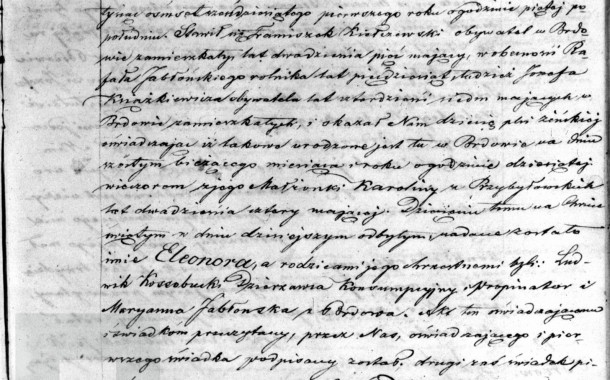 tysiąc ośmset sześćdziesiątego pierwszego roku o godzinie piątej po
południu. Stawił się Franciszek Kiełczewski obywatel w Brdo-
wie zamieszkały, lat dwadzieścia pięć mający, w obecności Ra-
fała Jabłońskiego rolnika lat pięćdziesiąt, tudzież Józefa
Książkiewicza obywatela lat czterdzieści siedm mających, w
Brdowie zamieszkałych, i okazał Nam dziecię płci żeńskiej
oświadczając iż takowe urodzone jest tu w Brdowie na dniu
szóstym bieżącego miesiąca i roku o godzinie dziesiątej
wieczorem z jego Małżonki Karoliny z Przybyłowskich
lat dwadzieścia cztery mającej. Dziecięciu temu na Chrzcie
świętym w dniu dzisiejszym odbytym, nadane zostało
imie Eleonora, a rodzicami jego chrzestnami byli: Lud-
wik Kossobucki Dzierżawca Konsumpcyjny Propinator i
Maryanna Jabłońska z Brdowa. Akt ten oświadczającemu
i świadkom przeczytany, przez Nas, oświadczającego i pier-
wszego świadka podpisany został. drugi zaś świadek pi-